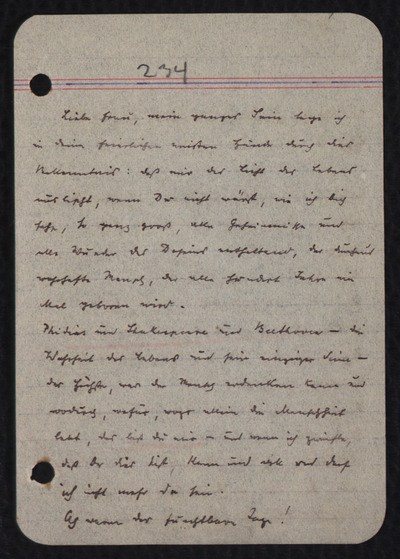 234
Liebe Frau, mein ganzes Sein lege ich
in deine feierlichen ernsten Hände durch dies
Bekenntnis: daß mir das Licht des Lebens
auslischt, wenn Du nicht wärst, wie ich dich
sehe, so ganz groß, alle Geheimnisse und
alle Wunder des Daseins enthaltend, der
wahrhafte Mensch, der alle hundert Jahre ein
Mal geboren wird.
Phidias und Shakespeare und Beethoven – die
Wahrheit des Lebens und sein einziger Sinn –
das Höchste, was der Mensch erdenken kann und
wodurch, wofür, wozu allein die Menschheit
lebt, das bist du mir – und wenn ich zweifle,
daß Du dies bist, kann und will und darf
ich nicht mehr da sein.
Ach wenn der furchtbare Tage!